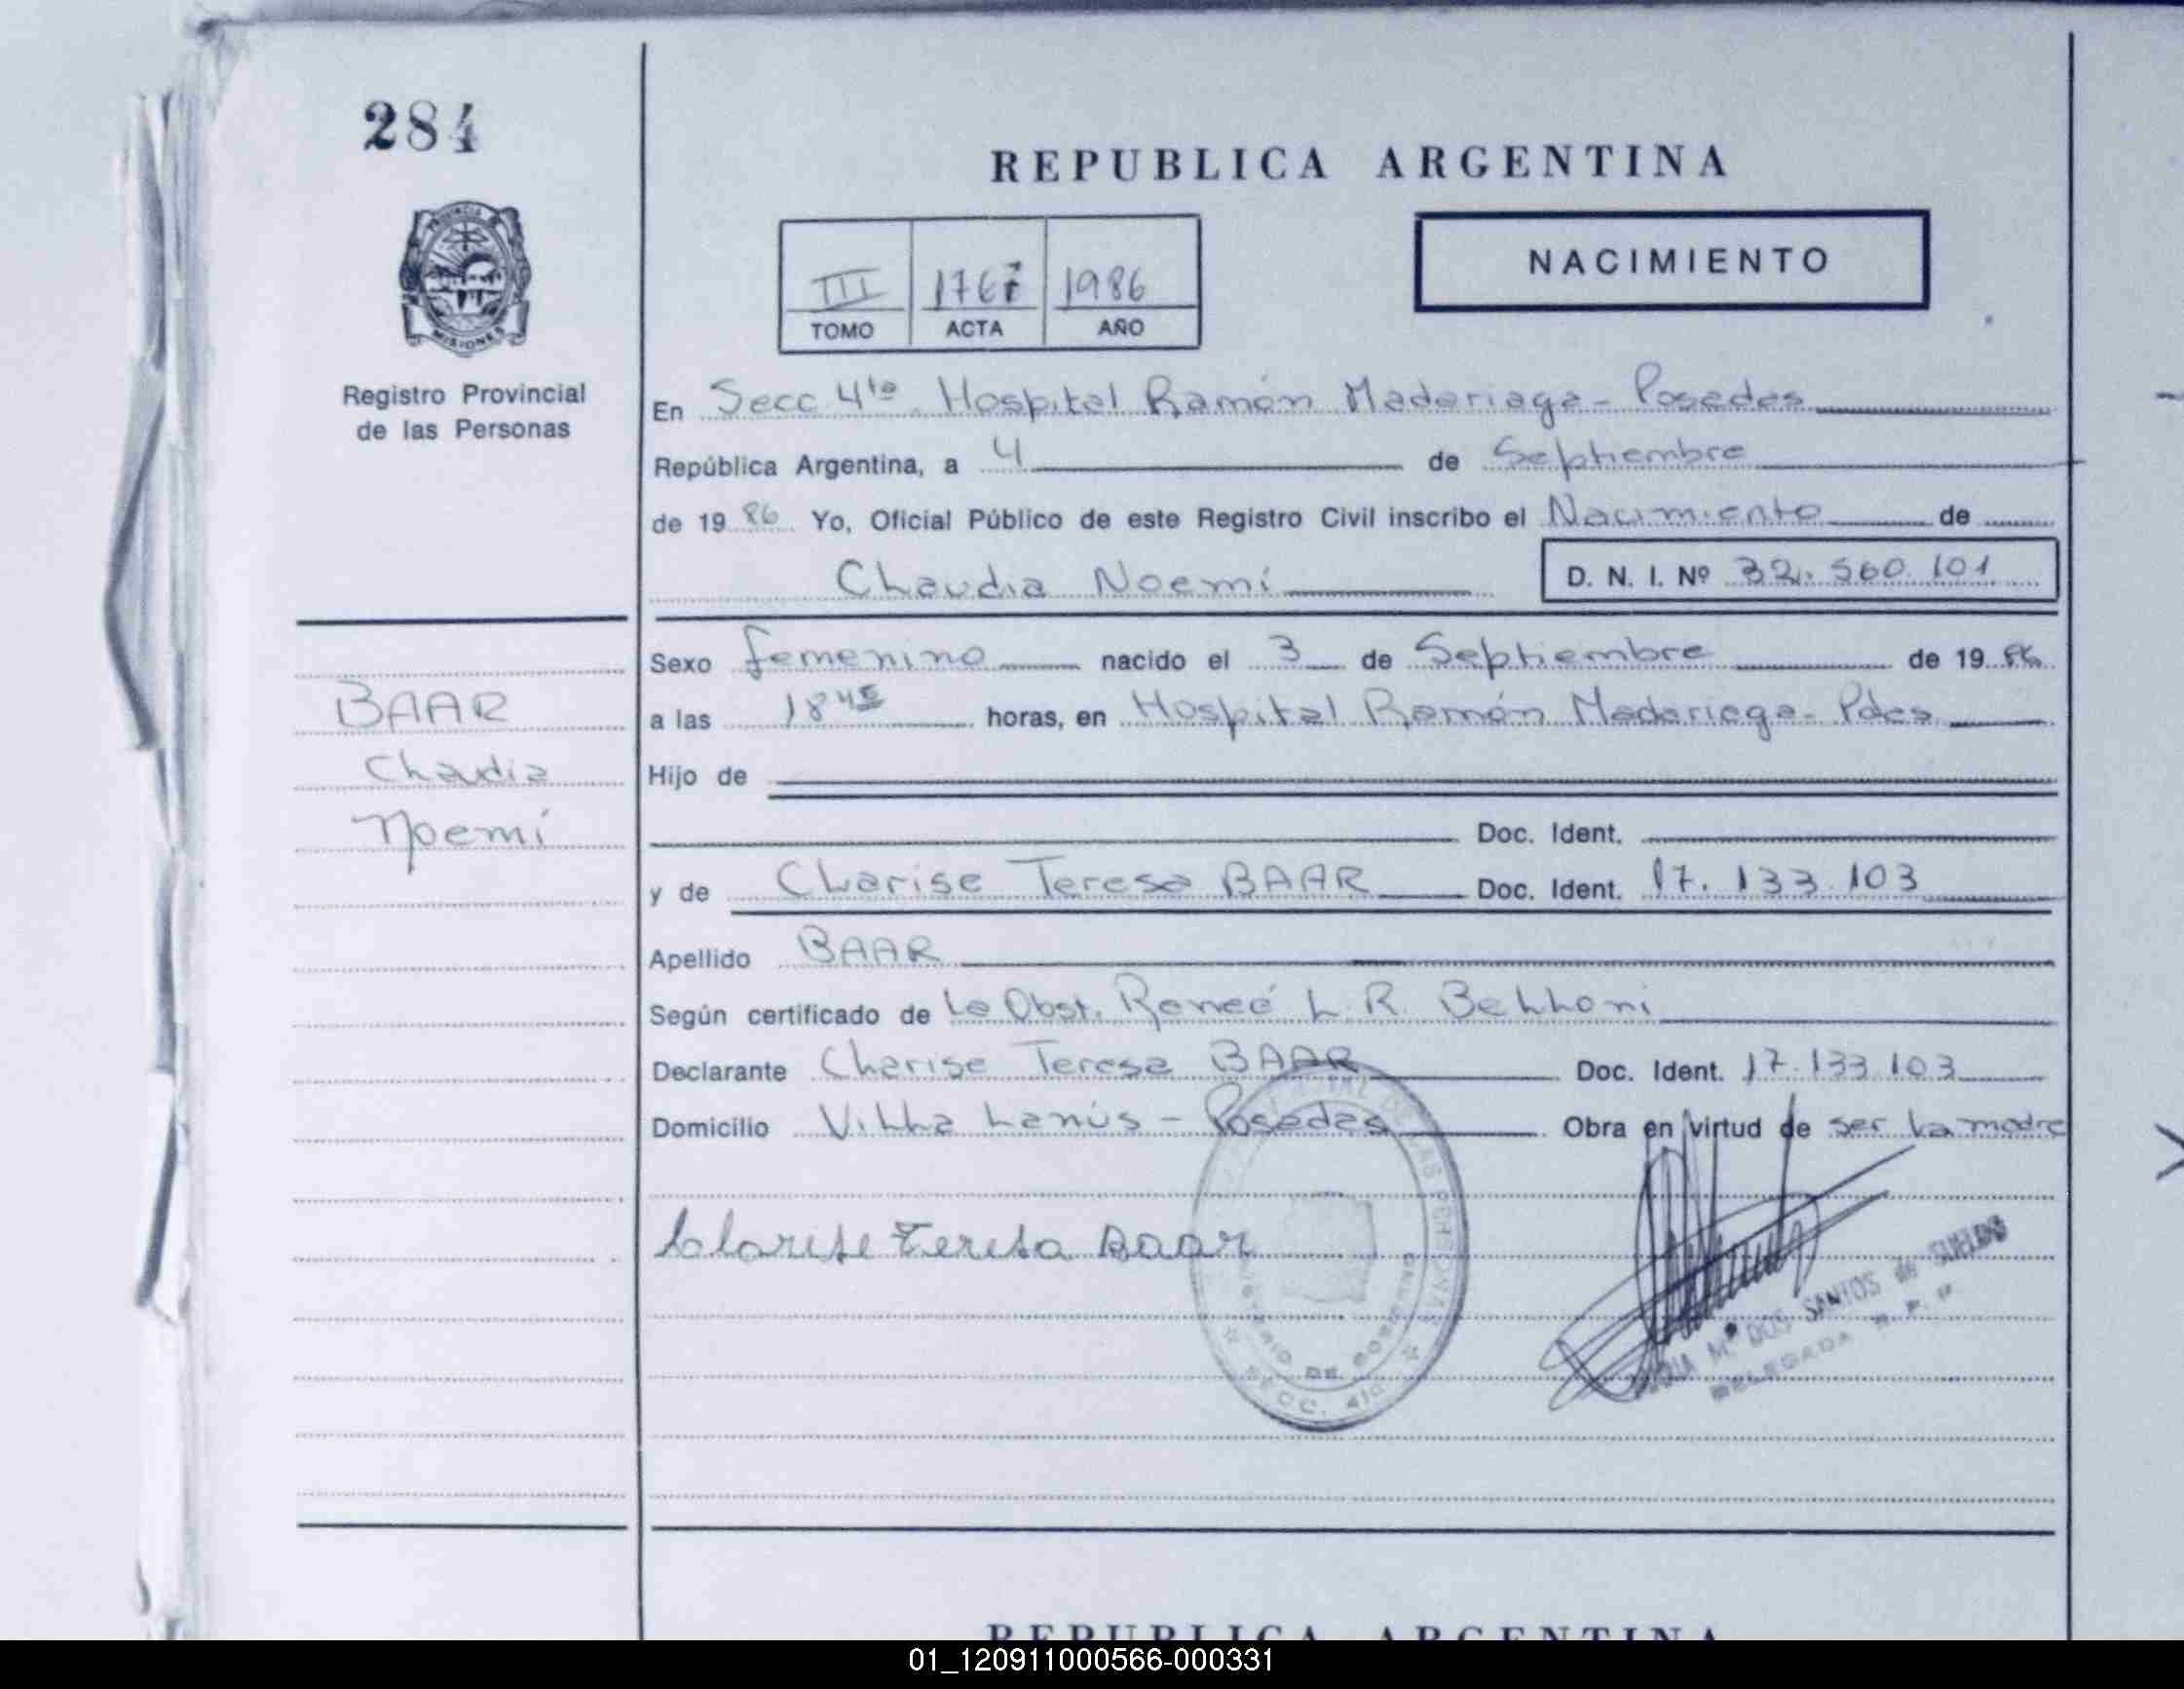 284
REPUBLICA ARGENTINA
PROVINCIA DE
MISIONES
Registro Provincial
de las Personas
NACIMIENTO
III 1767 1986
TOMO ACTA AÑO
En Secc 4ta Hospital Ramón Madariaga - Posadas
República Argentina, a 4 de Septiembre
de 1986 Yo, Oficial Público de este Registro Civil inscribo el Nacimiento de
Claudia Noemí D. N. I. Nº 32.560.101
Sexo femenino nacido el 3 de Septiembre de 1986
a las 18 45 horas, en Hospital Ramón Madariaga - Pdas
Hijo de
Doc. Ident.
y de Clarise Teresa BAAR Doc. Ident. 17.133.103
Apellido BAAR
Según certificado de La Obst. Reneé L. R. Belloni
Declarante Clarise Teresa BAAR Doc. Ident. 17.133.103
Domicilio Villa Lanús - Posadas Obra en virtud de ser la madre
Clarise Teresa Baar
BAAR
Claudia
Noemí
DE LAS PERSONAS
MINISTERIO DE GOBIERNO
SECC. 4ta
Mª DOS SANTOS de SUELDO
DELEGADA R. P. P.
REPUBLICA ARGENTINA
01_120911000566-000331